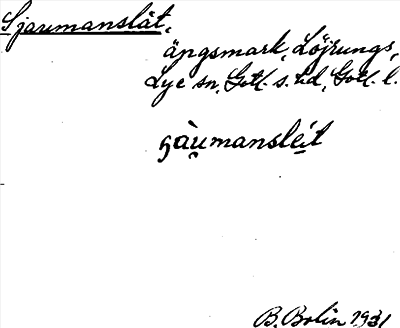 Sjaumanslät,
ängsmark, Löjrungs,
Lye sn, Gotl. s. hd, Gotl. l.
ʂàu̯mansléit
B. Bolin 1931